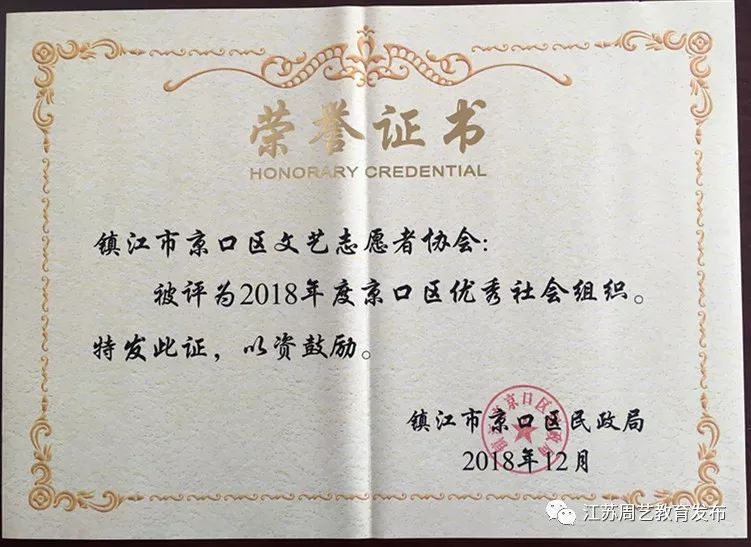 荣誉证书
HONORARY CREDENTIAL
镇江市京口区文艺志愿者协会:
被评为2018年度京口区优秀社会组织。
特发此证，以资鼓励。
镇江市京口区民政局
2018年12月
江苏周艺教育发布